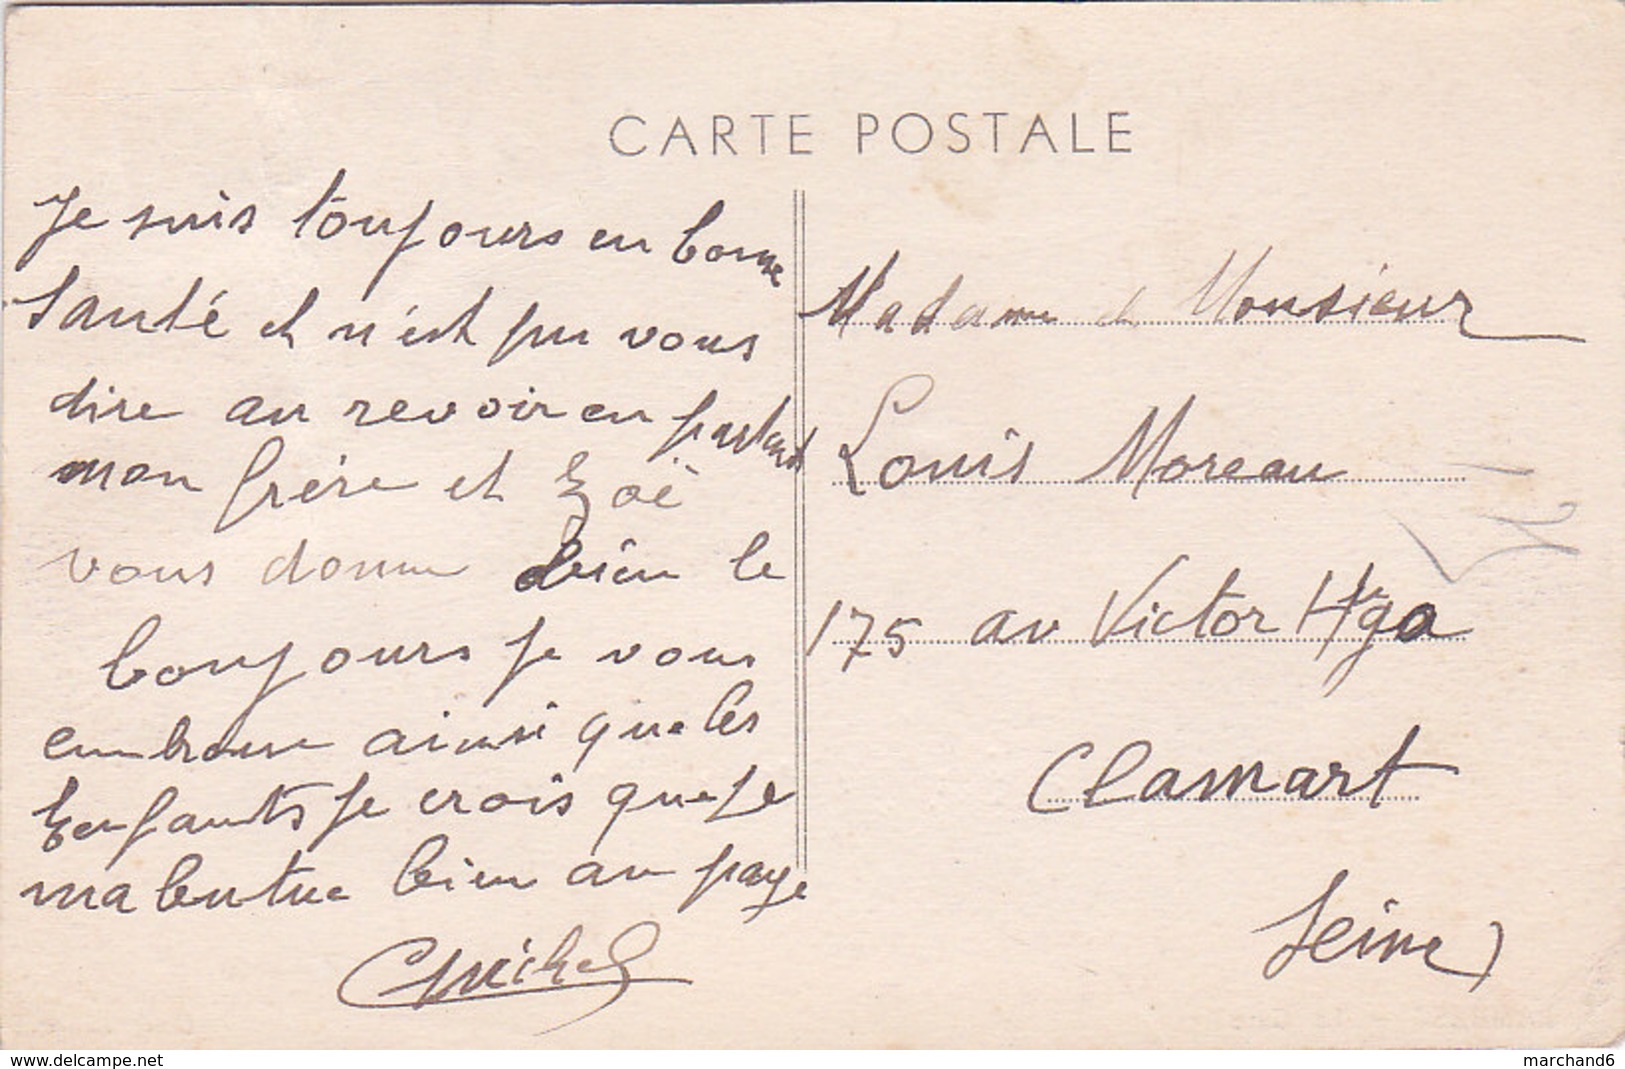 CARTE POSTALE
Je suis toujours en bonne
Santé et n'est pu vous
dire au revoir en partant
mon frère et Zoë
vous donne bien le
bonjours je vous
embrasse ainsi que les
Enfants je crois que je
ma butue bien au paye
Michel
Madame et Monsieur
Louis Moreau
175 av Victor Hgo
Clamart
Seine)
www.delcampe.net
marchand6